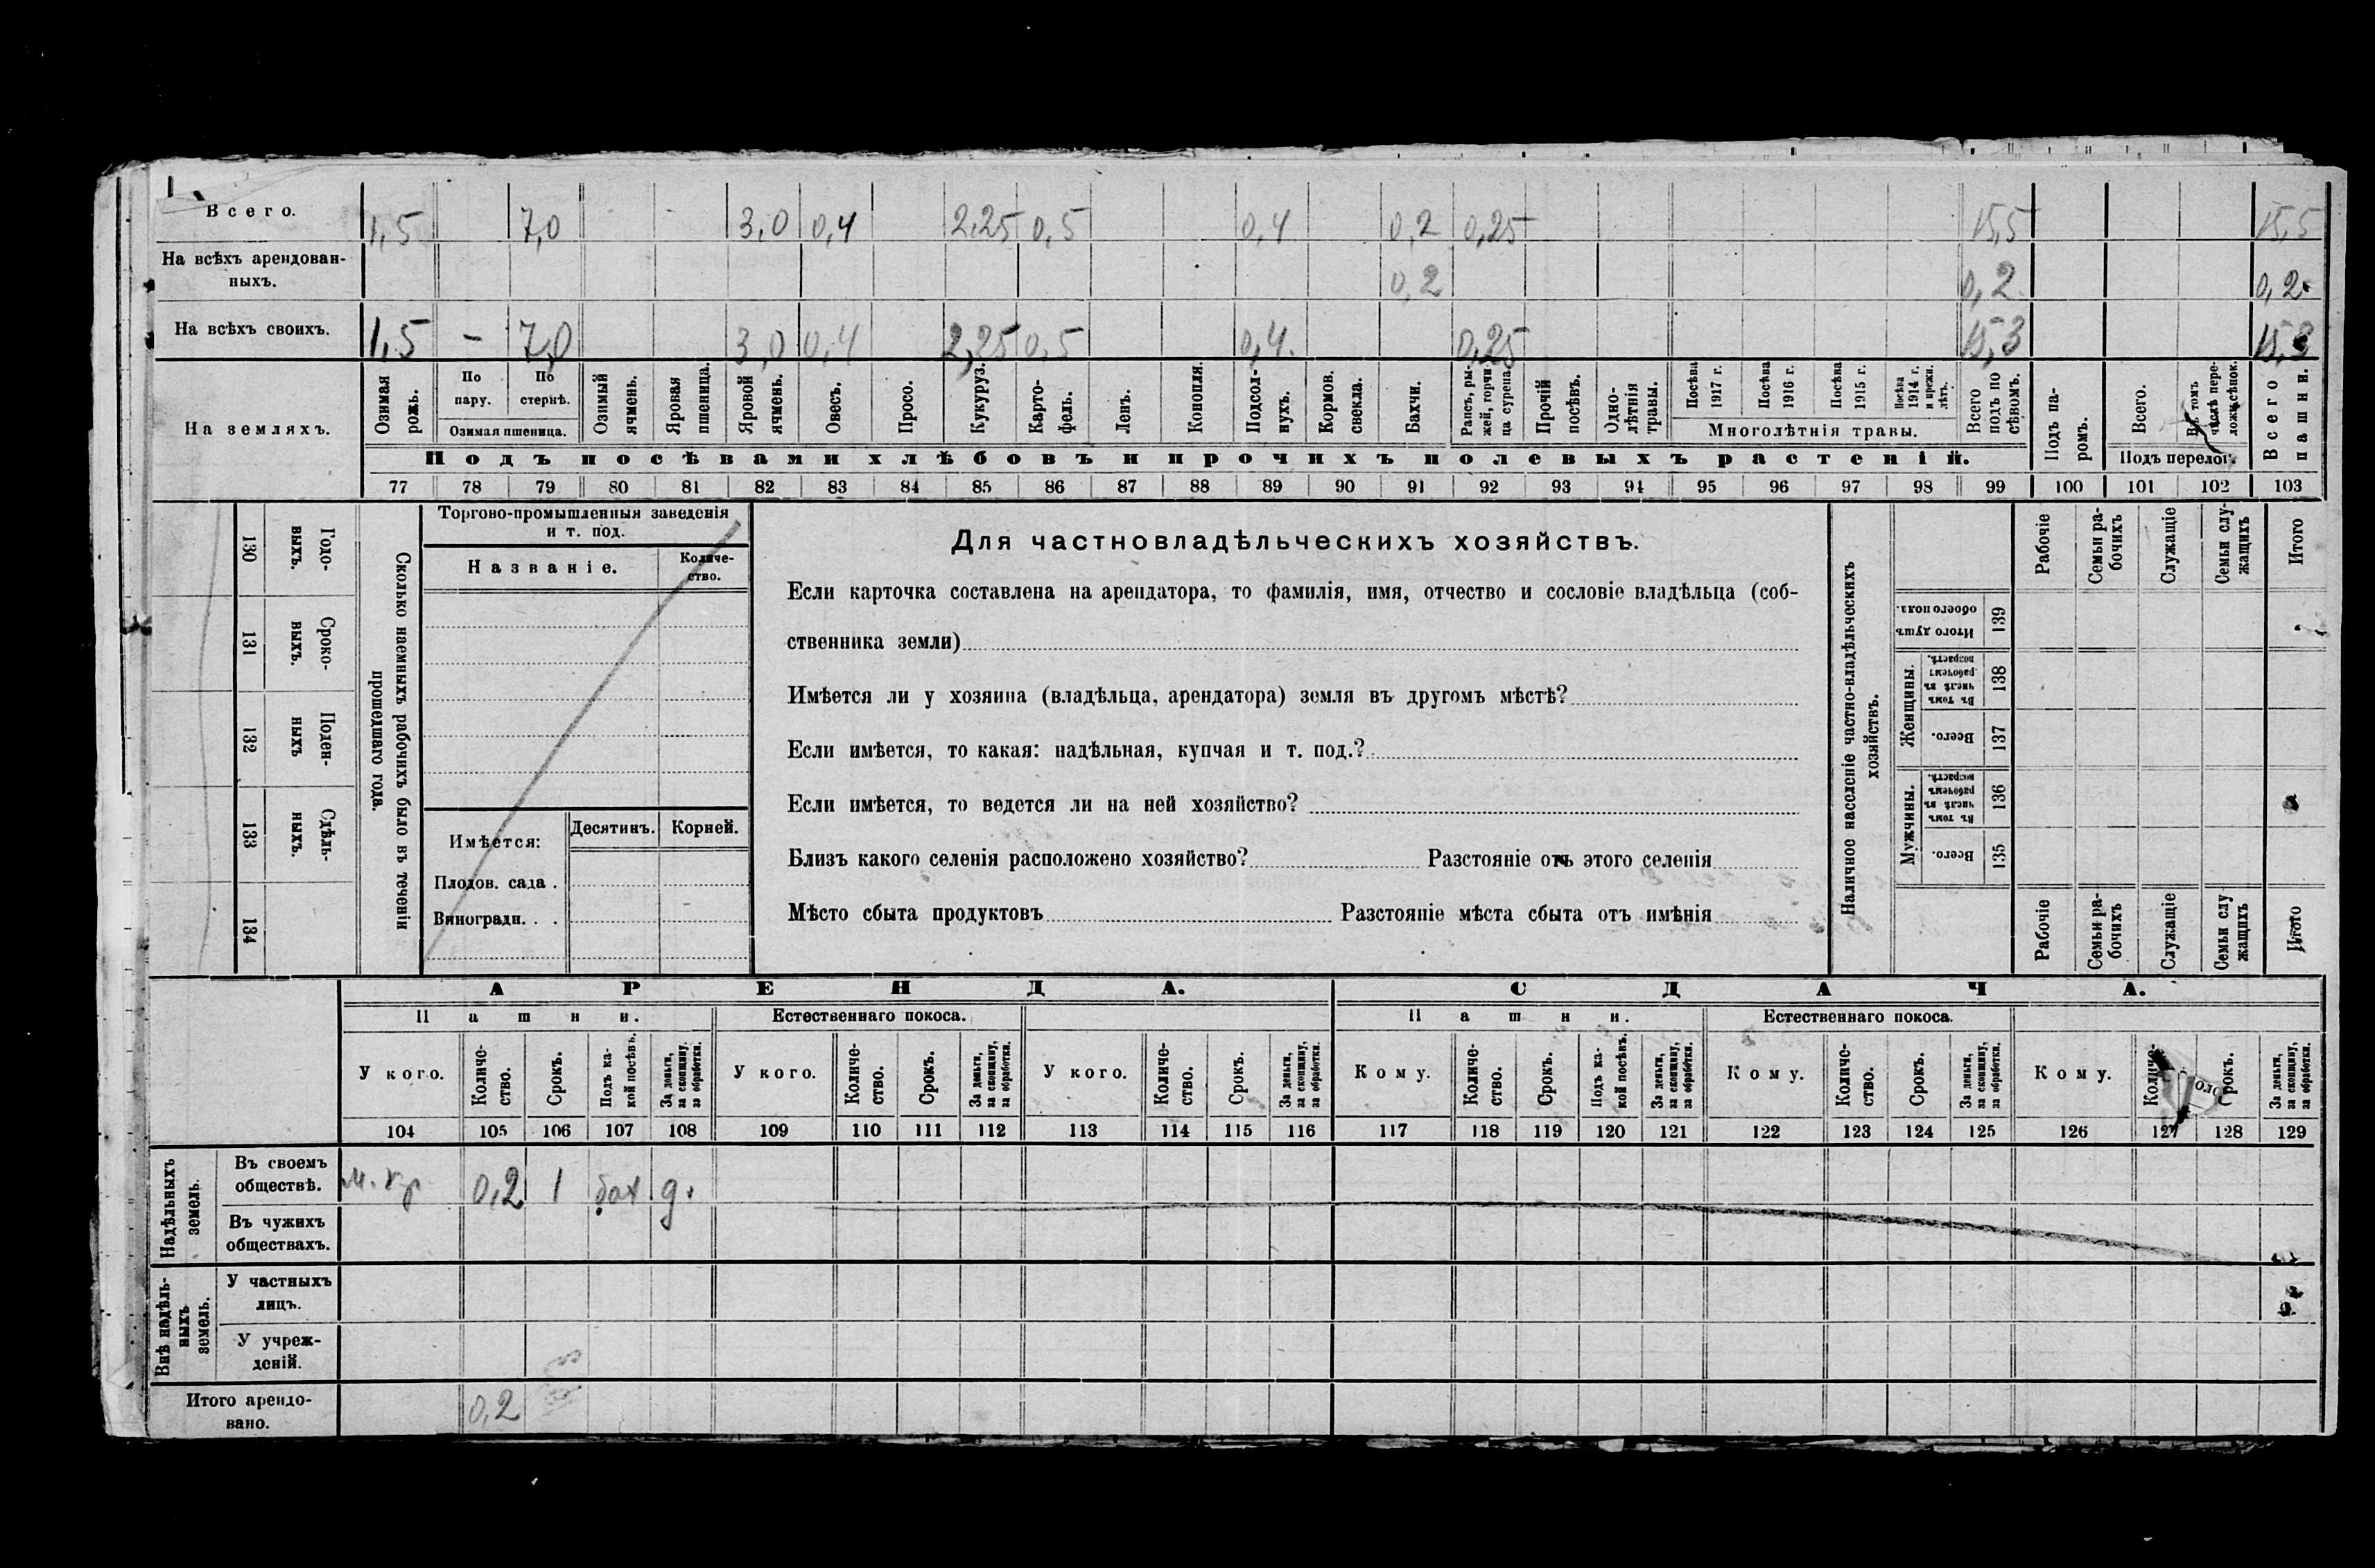 Всего. 1,5 7,0 3,0 0,4 2,25 0,5 0,4 0,2 0,25 15,5 15,5
На всѣхъ арендован-
ныхъ. 0,2 0,2 0,2
На всѣхъ своихъ. 1,5 – 7,0 3,0 0,4 2,25 0,5 0,4. 0,25 15,3 15,3
На земляхъ.
Озимая рожь.
По пару.
По стернѣ.
Озимая пшеница.
Озимый ячмень.
Яровая пшеница.
Яровой ячмень.
Овесъ.
Просо.
Кукуруз.
Карто-
фель.
Ленъ.
Конопля.
Подсол-
нухъ.
Кормов. свекла.
Бахчи.
Рапсъ, ры-
жей, горчи-
ца сурепа.
Прочій посѣвъ.
Одно-
лѣтнія травы.
Посѣва 1917 г.
Посѣва 1916 г.
Посѣва 1915 г.
Посѣва 1914 г. и прежн. лѣтъ.
Многолѣтнія травы.
Всего подъ по
сѣвомъ.
Подъ па-
ромъ.
Всего.
Въ томъ числѣ пере-
ложн. сѣнок.
Подъ перелог.
Всего пашни.
Подъ посѣвами хлѣбовъ и прочихъ полевыхъ растеній.
77 78 79 80 81 82 83 84 85 86 87 88 89 90 91 92 93 94 95 96 97 98 99 100 101 102 103
Сколько наемныхъ рабочихъ было въ теченіи
прошедшаго года.
Годо-
выхъ.
130
Сроко-
выхъ.
131
Поден-
ныхъ
132
Сдѣль-
ныхъ.
133
134
Торгово-промышленныя заведенія
и т. под.
Названіе.
Количе-
ство.
Имѣется:
Десятинъ. Корней.
Плодов. сада .
Виноградн. . .
Для частновладѣльческихъ хозяйствъ.
Если карточка составлена на арендатора, то фамилія, имя, отчество и сословіе владѣльца (соб-
ственника земли)
Имѣется ли у хозяина (владѣльца, арендатора) земля въ другомъ мѣстѣ?
Если имѣется, то какая: надѣльная, купчая и т. под.?
Если имѣется, то ведется ли на ней хозяйство?
Близъ какого селенія расположено хозяйство? Разстояніе отъ этого селенія
Мѣсто сбыта продуктовъ Разстояніе мѣста сбыта отъ имѣнія
Наличное населеніе частно-владѣльческихъ
хозяйствъ.
Рабочіе
Семьи ра-
бочихъ
Служащіе
Семьи слу-
жащихъ
Итого
Итого душъ
обоего пола.
139
Женщины.
Въ томъ числѣ въ рабочемъ возрастѣ.
138
Всего.
137
Мужчины.
Въ томъ числѣ въ рабочемъ возрастѣ.
136
Всего.
135
Рабочіе
Семьи ра-
бочихъ
Служащіе
Семьи слу
жащихъ
Итого
АРЕНДА. СДАЧА.
Пашни. Естественнаго покоса. Пашни. Естественнаго покоса.
У кого.
Количе-
ство.
Срокъ.
Подъ ка-
кой посѣвъ.
За деньги,
за скопщину,
за обработки.
У кого.
Количе-
ство.
Срокъ.
За деньги,
за скопщину,
за обработки.
У кого.
Количе-
ство.
Срокъ.
За деньги,
за скопщину,
за обработки.
Кому.
Количе-
ство.
Срокъ.
Подъ ка-
кой посѣвъ.
За деньги,
за скопщину,
за обработки.
Кому.
Количе-
ство.
Срокъ.
За деньги,
за скопщину,
за обработки.
Кому.
Количе-
Срокъ.
За деньги,
за скопщину,
за обработки.
104 105 106 107 108 109 110 111 112 113 114 115 116 117 118 119 120 121 122 123 124 125 126 127 128 129
Надѣльныхъ
земель.
Въ своемъ
обществѣ. 0,2 1 бах д.
Въ чужихъ
обществахъ.
Внѣ надѣль-
ныхъ
земель.
У частныхъ
лицъ.
У учреж-
деній.
Итого арендо-
вано. 0,2